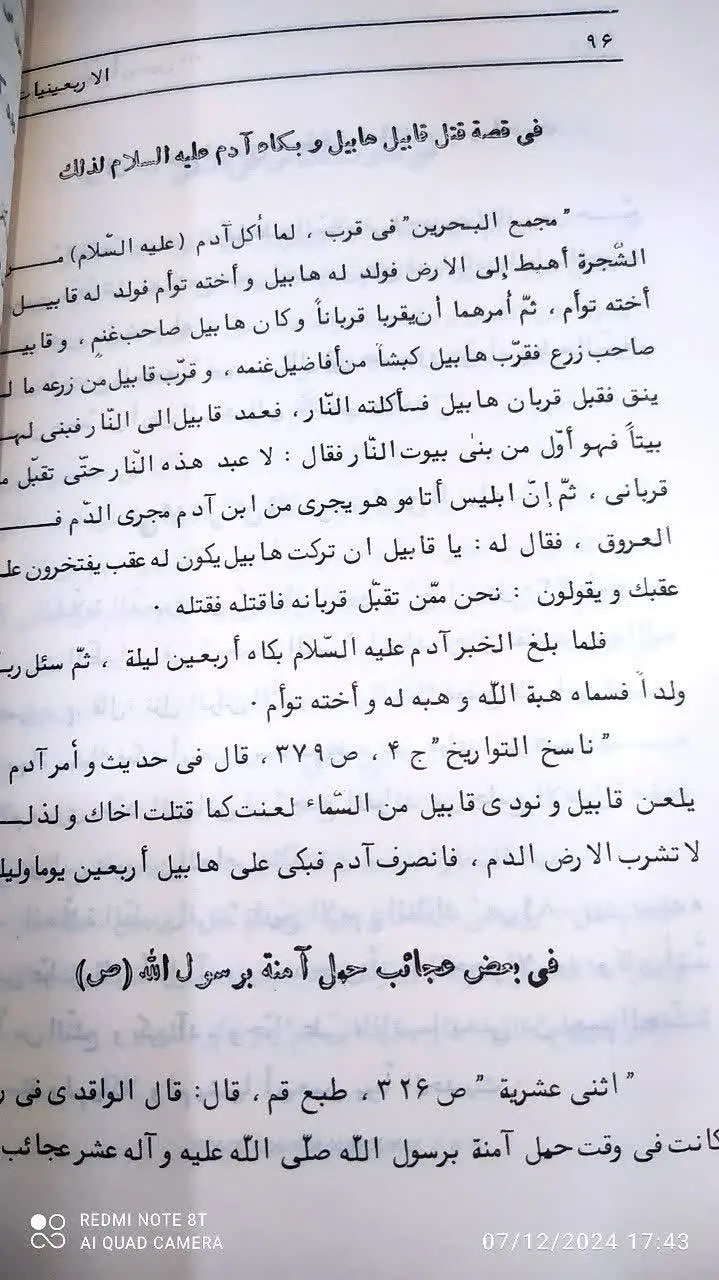 ۹۶
الاربعينيات
فى قصة قتل قابيل هابيل و بكاء آدم عليه السلام لذلك
"مجمع البحرين" فى قرب ، لما أكل آدم (عليه السّلام) مــن
الشّجرة أهبط إلى الارض فولد له هابيل و أخته توأم فولد له قابيــل
أخته توأم ، ثمّ أمرهما أن يقربا قرباناً و كان هابيل صاحب غنم ، و قابيــ
صاحب زرع فقرّب هابيل كبشاً من أفاضيل غنمه ، و قرّب قابيل من زرعه ما لـ
ينق فقبل قربان هابيل فسأكلته النّار ، فعمد قابيل الى النّار فبنى لهـ
بيتاً فهو أوّل من بنىٰ بيوت النّار فقال : لا عبد هذه النّار حتّى تقبّل
قربانى ، ثمّ إنّ ابليس أتامو هو يجرى من ابن آدم مجرى الدّم فـــ
العروق ، فقال له : يا قابيل ان تركت هابيل يكون له عقب يفتخرون علـ
عقبك و يقولون : نحن ممّن تقبّل قربانه فاقتله فقتله ۰
فلما بلغ الخبر آدم عليه السّلام بكاه أربعين ليلة ، ثمّ سئل ربـ
ولداً فسماه هبة اللّه و هبه له و أخته توأم ۰
"ناسخ التواريخ" ج ۴ ، ص ۳۷۹ ، قال فى حديث و أمر آدم
يلعن قابيل و نودى قابيل من السّماء لعنت كما قتلت اخاك و لذلــ
لا تشرب الارض الدم ، فانصرف آدم فبكى على هابيل أربعين يوما وليلـ
فى بعض عجائب حمل آمنة برسول الله (ص)
"اثنى عشرية" ص ۳۲۶ ، طبع قم ، قال: قال الواقدى فى
كانت فى وقت حمل آمنة برسول اللّه صلّى اللّه عليه و آله عشر عجائب
REDMI NOTE 8T
AI QUAD CAMERA
07/12/2024 17:43